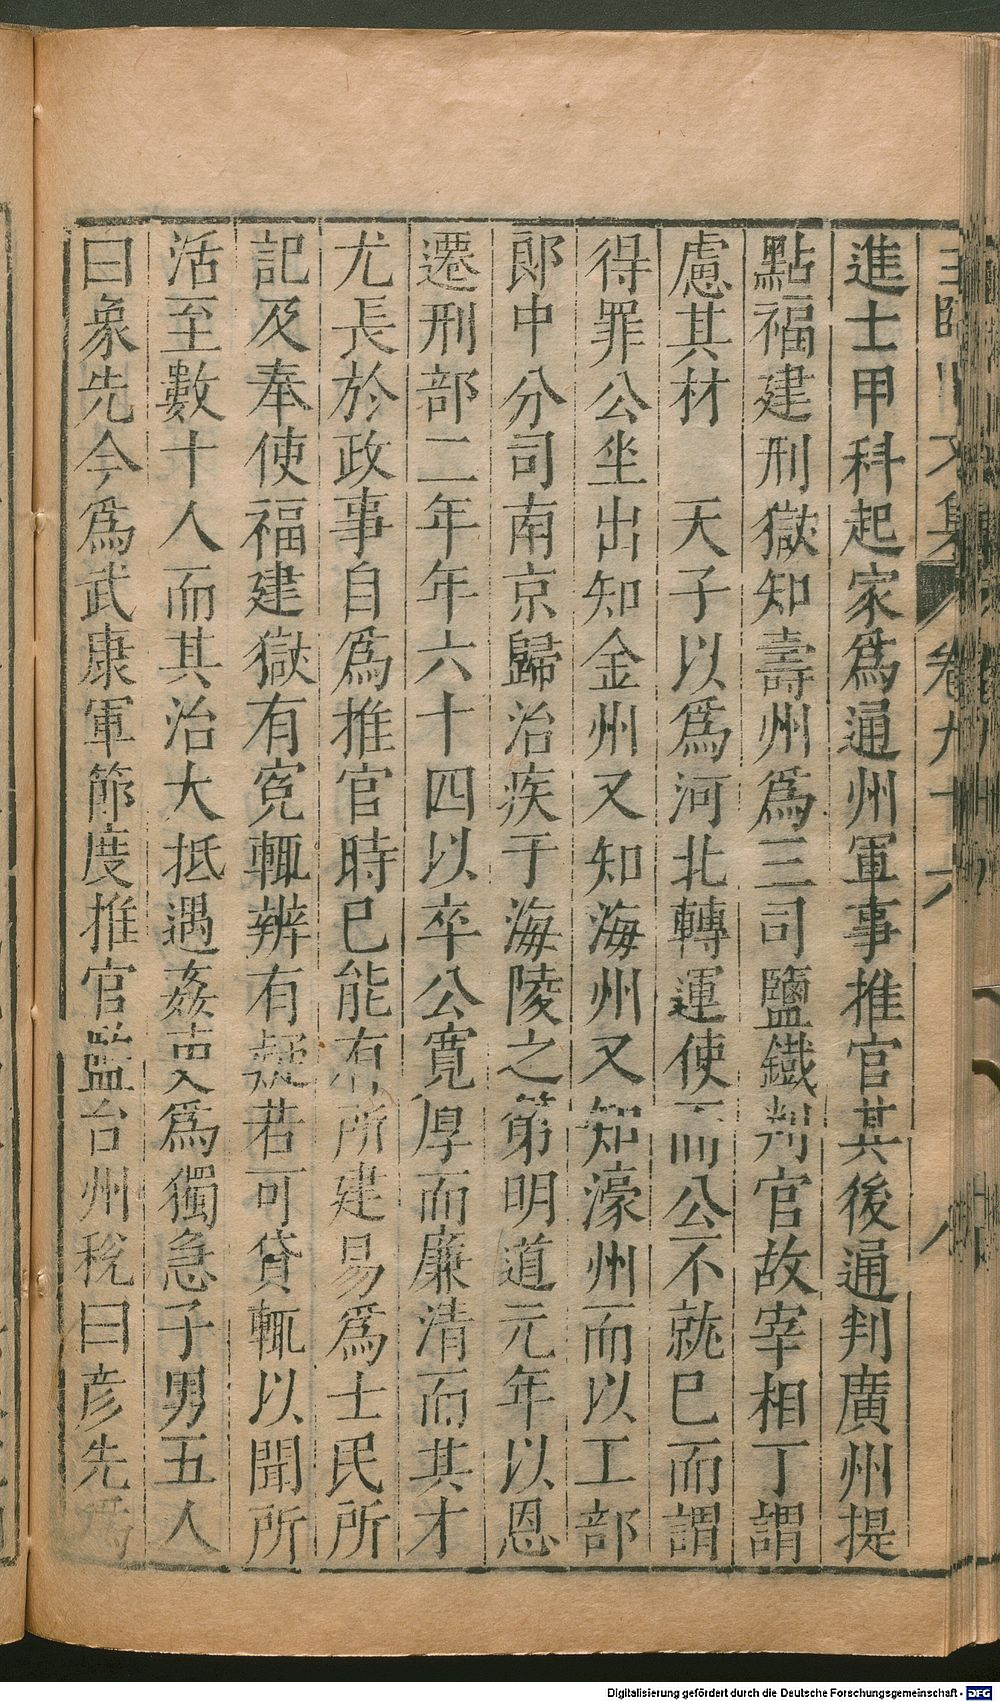 王臨川文集 卷九十六 八
進士甲科起家爲通州軍事推官其後通判廣州提
點福建刑獄知壽州爲三司鹽鐵判官故宰相丁謂
慮其材 天子以爲河北轉運使而公不就已而謂
得罪公坐出知金州又知海州又知濠州而以工部
郞中分司南京歸治疾于海陵之第明道元年以恩
遷刑部二年年六十四以卒公寬厚而廉清而其才
尤長於政事自爲推官時已能有所建易爲士民所
記及奉使福建獄有寃輒辨有疑若可貸輒以聞所
活至數十人而其治大抵遇姦吏爲獨急子男五人
曰象先今爲武康軍節度推官監台州稅曰彦先爲
Digitalisierung gefördert durch die Deutsche Forschungsgemeinschaft - DFG